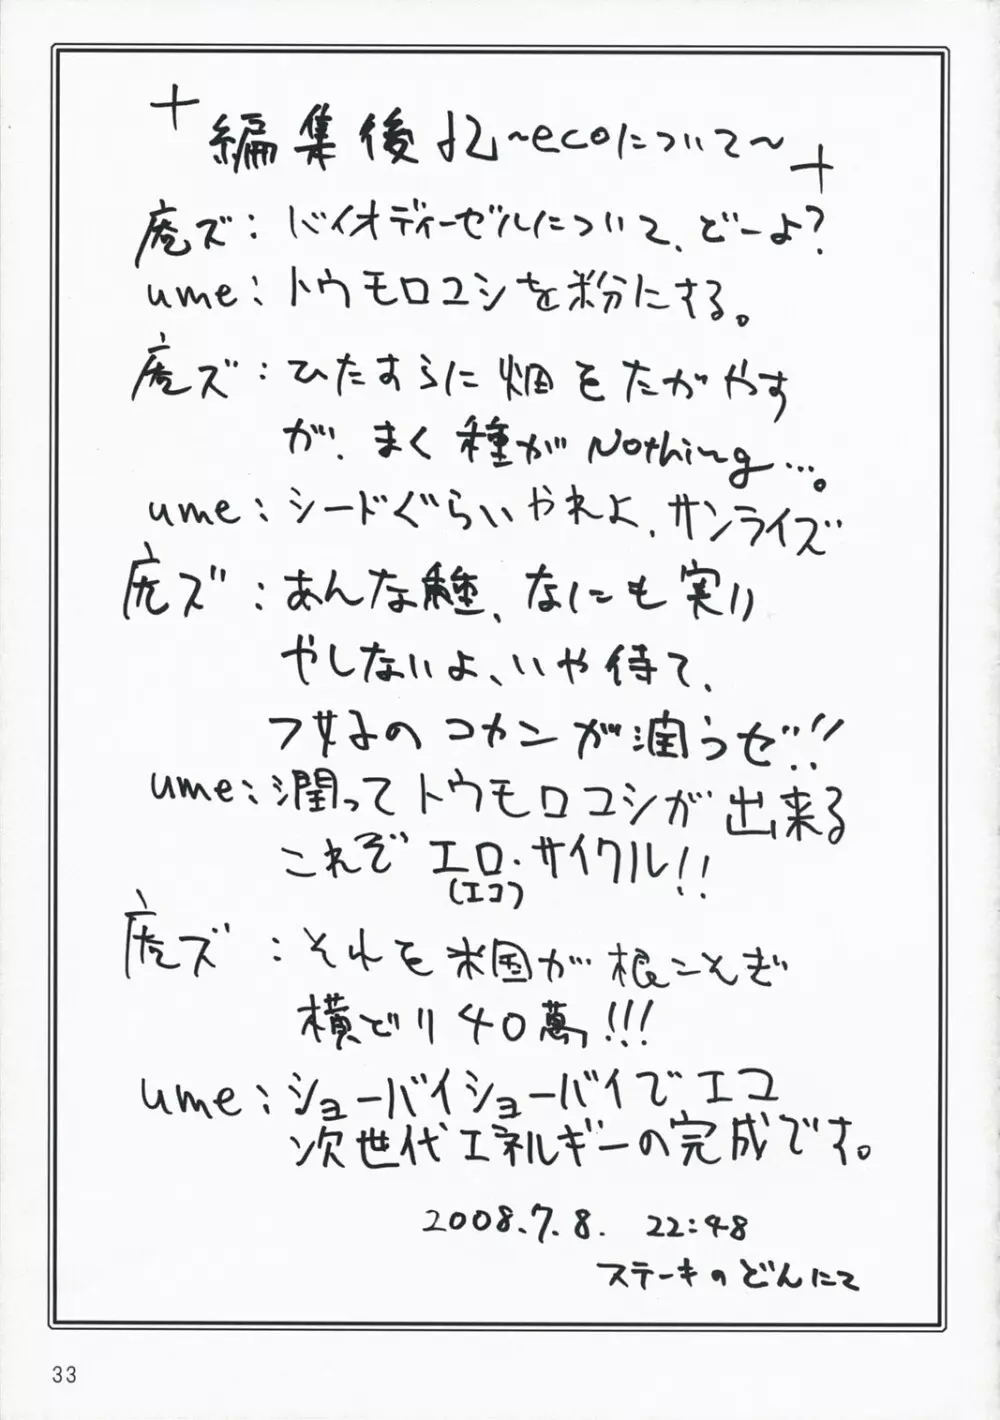 編集後記~ecoについて~
虎ズ:バイオディーゼルについて、どーよ?
ume:トウモロコシを粉にする。
虎ズ:ひたすらに畑をたがやす
が、まく種がNothing…。
ume:シードぐらいやれよ、サンライズ
虎ズ:あんな種、なにも実り
やしないよ、いや待て、
フ女子のコカンが潤うぜ!!
ume:潤ってトウモロコシが出来る
これぞエロ・サイクル!!
(エコ)
虎ズ:それを米国が根こそぎ
横どり40萬!!!
ume:ショーバイショーバイでエコ
次世代エネルギーの完成です。
2008.7.8. 22:48
ステーキのどんにて
33